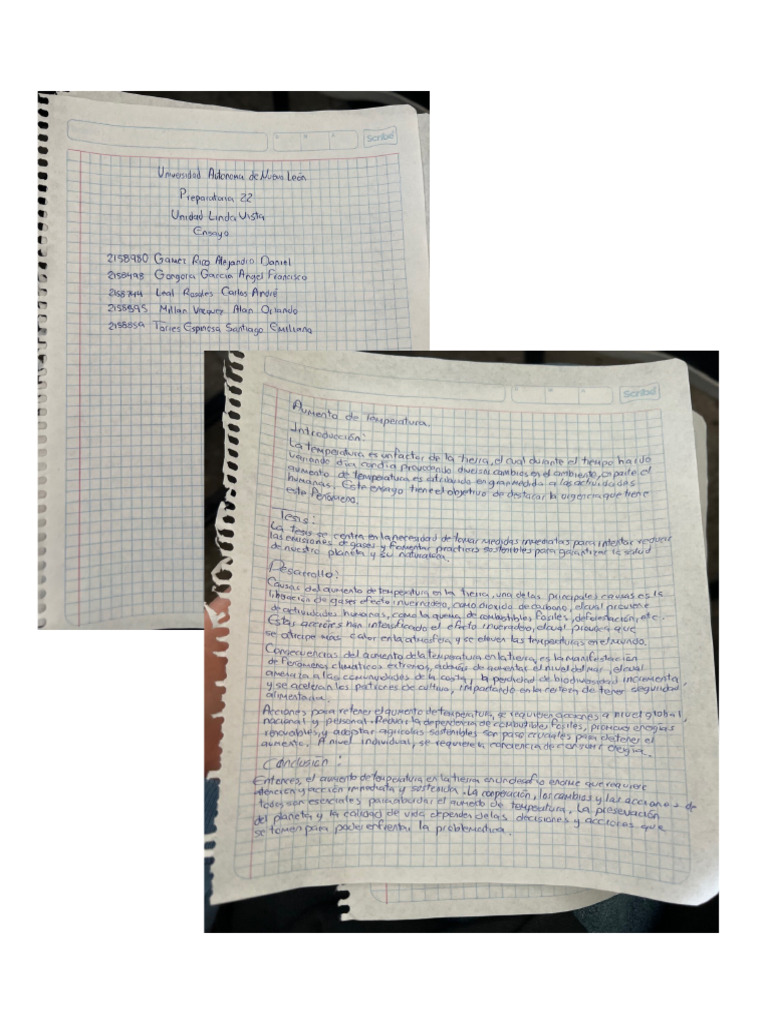 Scribe
Universidad Autonoma de Nuevo León
Preparatoria 22
Unidad Linda Vista
Ensayo
2158980 Gamez Rico Alejandro Daniel
Gongora Garcia Angel Francisco
Leal Rosales Carlos André
Millan Vazquez Alan Orlando
Torres Espinosa Santiago Emiliano
Scribe
Aumento de temperatura
Introducción:
La temperatura es un factor de la tierra, el cual durante el tiempo ha ido
variando dia con dia provocando diversos cambios en el ambiente, aparte el
aumento de temperatura es atribuido en gran medida a las actividades
humanas. Este ensayo tiene el objetivo de destacar la urgencia que tiene
este Fenómeno.
Tesis:
La tesis se centra en la necesidad de tomar medidas inmediatas para intentar reducir
las emisiones de gases y fomentar practicas sostenibles para garantizar la salud
de nuestro planeta y su naturaleza.
Desarrollo:
Causas del aumento de temperatura en la tierra, una de las principales causas es la
liberación de gases efecto invernadero, como dioxido de carbono, el cual proviene
de actividades humanas, como la quema de combustibles fosiles, deforestación, etc.
Estas acciones han intensificado el efecto invernadero, el cual provoca que
se atrape más calor en la atmosfera y se eleven las temperaturas en el mundo.
Consecuencias del aumento de la temperatura en la tierra, es la manifestación
de Fenómenos climaticos extremos, además de aumentar el nivel del mar, el cual
amenaza a las comunidades de la costa, la perdida de biodiversidad incrementa,
y se aceleran los patrones de cultivo, impactando en la certeza de tener seguridad
alimentaria.
Acciones para retener el aumento de temperatura, se requieren acciones a nivel global,
nacional y personal. Reducir la dependencia de combustibles Fosiles, promover energias
renovables, y adoptar agricolas sostenibles son paso cruciales para detener el
aumento. A nivel individual, se requiere la conciencia de consumir energia.
Conclusión:
Entonces, el aumento de temperatura en la tierra es un desafio enorme que requiere
atencion y acción inmediata y sostenida. La cooperación, los cambios y las acciones de
todos son esenciales para abordar el aumento de temperatura, La preservación
del planeta y la calidad de vida dependen de las decisiones y acciones que
se tomen para poder enfrentar la problematica.